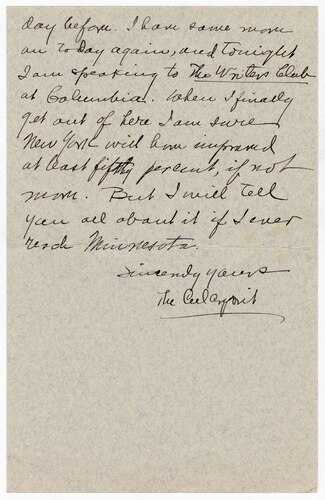 day before. I have some more
on today again, and tonight
I am speaking to The Writers Club
at Columbia. When I finally
get out of here I am sure
New York will have improved
at least fifty percent, if not
more. But I will tell
you all about it if I ever
reach Minnesota.
Sincerely yours
The